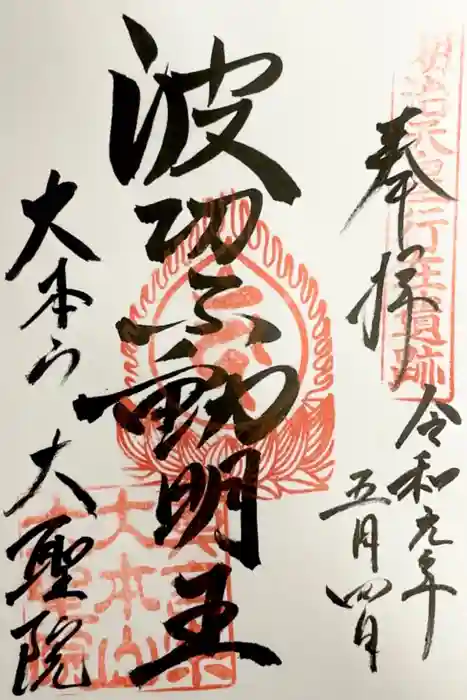 奉拝
明治天皇行在遺跡
令和元年
五月四日
波切不動明王
大本山 大聖院
大本山
大聖院